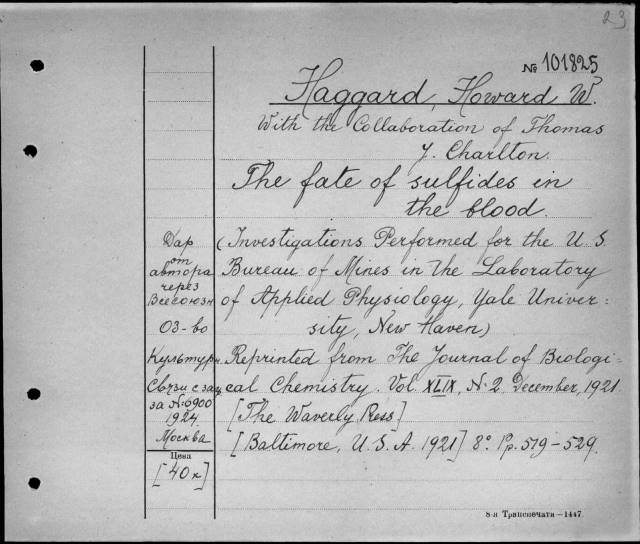 23
№ 101825
Haggard, Howard W.
With the Collaboration of Thomas
J. Charlton.
The fate of sulfides in
the blood.
(Investigations Performed for the U. S.
Bureau of Mines in the Laboratory
of Applied Physiology, Yale Univer-
sity, New Haven)
Reprinted from The Journal of Biologi-
cal Chemistry. Vol. XLIX, N. 2. December, 1921.
[The Waverly Ress]
[Baltimore, U. S. A. 1921] 8° Pp. 519-529.
Дар
от
автора
через
Всесоюзн
О3-во
Культурн
Связи с заг
за №: 6900
1924.
Москва
Цена
[40 к]
8-я Транспечати—1447.